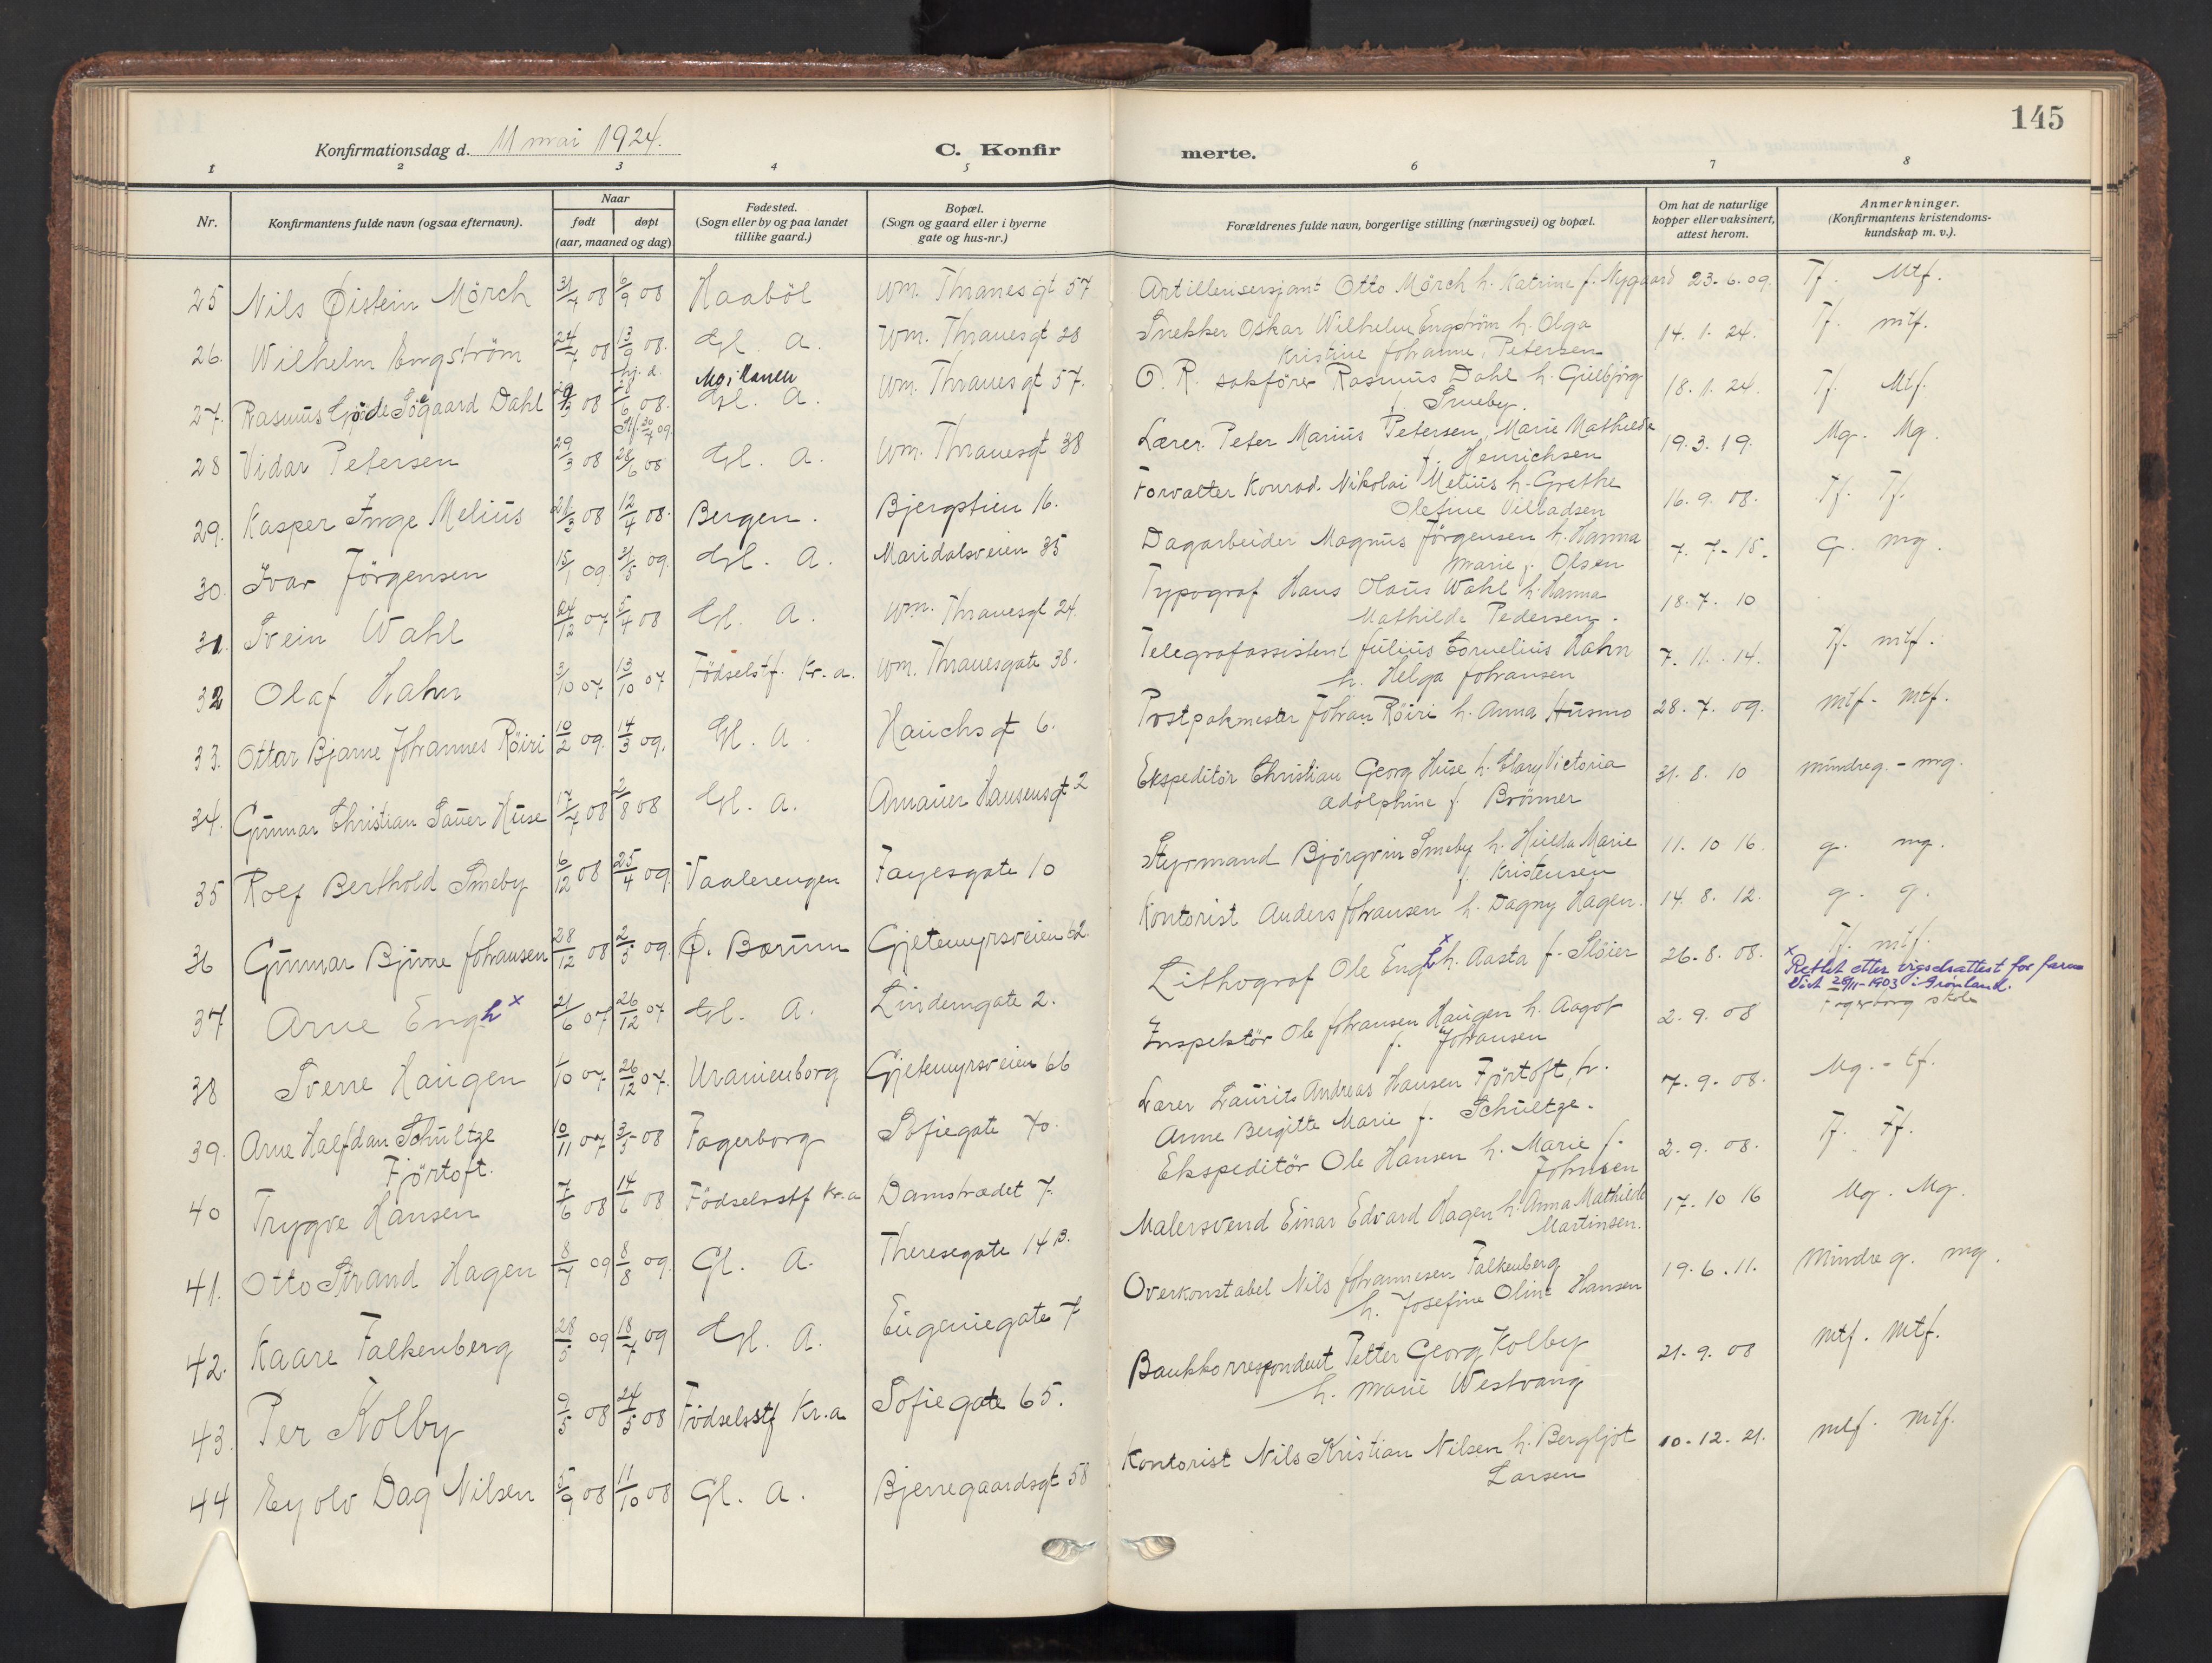 145
Konfirmationsdag d. 11 mai 1924.
C. Konfirmerte.
1 2 3 4 5 6 7 8
Nr.
Konfirmantens fulde navn (ogsaa efternavn).
Naar
født døpt
(aar, maaned og dag)
Fødested.
(Sogn eller by og paa landet
tillike gaard.)
Bopæl.
(Sogn og gaard eller i byerne
gate og hus-nr.)
Forældrenes fulde navn, borgerlige stilling (næringsvei) og bopæl.
Om hat de naturlige
kopper eller vaksinert,
attest herom.
Anmerkninger.
(Konfirmantens kristendoms-
kundskap m. v.).
25 Nils Øistein Mörch 31/7 08 6/9 08 Haaböl Wm. Thranesgt 57 Artillerisersjant Otto Mörch h. Katrine f. Nygaard 23.6.09. Tf. Mtf.
26. Wilhelm Engström 24/7 08 13/9 08. Gl. A. Wm. Thranesgt 28 Snekker Oskar Wilhelm Engström h. Olga
Kristine Johanne Petersen 14.1.24. Tf. mtf.
27. Rasmus Gjöde Søgaard Dahl 29/3 08 hj. d. /6 08. Stf. 30/4 09. Gl. A. Wm. Thranesgt 57. O. R. sakförer Rasmus Dahl h. Gulbjörg
f. Smeby. 18.1.24. Tf. Mtf.
28 Vidar Petersen 29/3 08 28/6 08 Gl. A. Wm. Thranesgt 38 Lærer Peter Marius Petersen, Marie Mathilde
f. Henrichsen 19.3.19. Mg. Mg.
29. Kasper Inge Melius 21/3 08 12/4 08. Bergen. Bjergstien 16. Forvalter Konrad Nikolai Melius h. Grethe
Olefine Villadsen 16.9.08. Tf. Tf.
30. Ivar Jörgensen 15/1 09 31/5 09. Gl. A. Maridalsveien 35 Dagarbeider Magnus Jörgensen h. Hanna
Marie f. Olsen 7.7-15. G. mg.
31. Svein Wahl 24/12 07 5/4 08 Gl. A. Wm. Thranesgt 24. Typograf Hans Olaus Wahl h. Hanna
Mathilde Pedersen. 18.7.10
32 Olaf Hahn 3/10 07. 13/10 07 Födselsstf. Kr.a. Wm. Thranesgate 38. Telegrafassistent Julius Cornelius Hahn
h. Helga Johansen 7.11.14. Tf. mtf.
33. Ottar Bjarne Johannes Röiri 10/2 09. 14/3 09. Gl. A. Hauchsgt 6. Postpakmester Johan Röiri h. Anna Husmo 28.7.09. mtf. mtf.
34. Gunnar Christian Sauer Huse 17/7 08 2/8 08 Gl. A. Amauer Hansensgt 2 Ekspeditör Christian Georg Huse h. Clary Victoria
Adolphine f. Brönner 31.8.10 mindreg. - mg.
35 Rolf Berthold Smeby 6/12 08 25/4 09. Vaalerengen Fayesgate 10 Styrmand Björgvin Smeby h. Hulda Marie
f. Kristensen 11.10 16. g. mg.
36 Gunnar Bjarne Johansen 28/12 08 2/5 09. Ø. Bærum Gjetemyrsveien 62. Kontorist Anders Johansen h. Dagny Hagen. 14.8.12. g. g.
37 Arne Engh x 21/6 07 26/12 07 Gl. A. Lindemgate 2. Lithograf Ole Engh x h. Aasta f. Slöier 26.8.08. Tf. mtf.
x Rettet etter vigselsattest for farn
Viet 28/11-1903 i Grønland.
38 Sverre Haugen 1/10 07. 26/12 07. Uranienborg Gjetemyrsveien 66 Inspektör Ole Johansen Haugen h. Aagot
f. Johansen 2.9.08 Fagerborg skole
39. Arne Halfdan Schultze
Fjörtoft. 10/11 07 3/5 08 Fagerborg Sofiegate 70. Lærer Laurits Andreas Hansen Fjörtoft, h.
Anne Bergitte Marie f. Schultze. 7.9.08. Mg. - tf.
40 Trygve Hansen 7/6 08 14/6 08 Födselsstf Kr.a Damstrædet 7. Ekspeditör Ole Hansen h. Marie f.
Johnsen 2.9.08. Tf. Tf.
41. Otto Strand Hagen 8/7 09 8/8 09. Gl. A. Theresegate 14 B. Malersvend Einar Edvard Hagen h. Anna Mathilde
Martinsen. 17.10 16 Mg. Mg.
42. Kaare Falkenberg 28/5 09 18/7 09 Gl. A. Eugeniegate 7 Overkonstabel Nils Johannesen Falkenberg
h. Josefine Oline Hansen 19.6.11. Mindre g. mg.
43. Per Kolby 9/5 08 24/5 08 Födselsstf Kr.a Sofiegate 65. Bankkorrespondent Petter Georg Kolby
h. Marie Westvang 21.9.08 mtf. mtf.
44 Eyolv Dag Nilsen 5/9 08 11/10 08 Gl. A. Bjerregaardsgt 58 Kontorist Nils Kristian Nilsen h. Bergljot
Larsen 10.12.21. mtf. mtf.